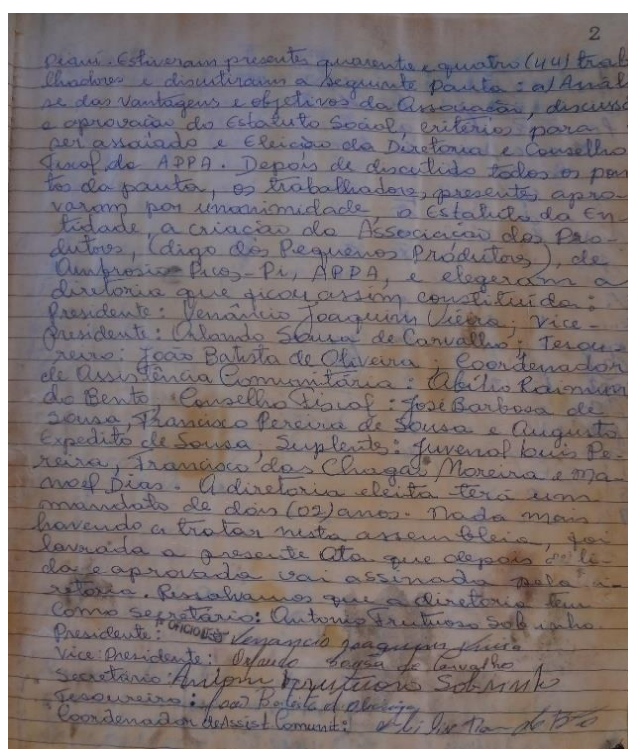 2
piauí. Estiveram presentes quarenta e quatro (44) trab
lhadores e discutiram a seguinte pauta: a) Anál
se das vantagens e objetivos da Associação, discussã
e aprovação do Estatuto Social, critérios para
ser associado e Eleição da Diretoria e Conselho
Fiscal da APPA. Depois de discutido todos os pon
tos da pauta, os trabalhadores presentes apro-
varam por unanimidade, o Estatuto da En-
tidade a criação da Associação dos Pro-
dutores, (digo dos Pequenos Produtores), de
Ambrosio Picos-Pi, APPA, e elegeram a
diretoria que ficou assim constituída:
Presidente: Venâncio Joaquim Vieira; Vice-
Presidente: Orlando Sousa de Carvalho; Tesou-
reiro: João Batista de Oliveira; Coordenador
de Assistência Comunitária: Abílio Raimun
do Bento. Conselho Fiscal: José Barbosa de
Sousa, Francisco Pereira de Sousa e Augusto
Expedito de Sousa, Suplentes: Juvenal Louis Pe-
reira, Francisco das Chagas Moreira e Ma-
noel Dias. A diretoria eleita terá um
mandato de dois (02) anos. Nada mais
havendo a tratar nesta assembleia, foi
lavrada a presente Ata que depois de li-
da e aprovada vai assinada pela di-
retoria. Ressalvamos que a diretoria tem
como secretário: Antonio Frutuoso Sobrinho
Presidente: Venancio Joaquim Vieira
Vice-Presidente: Orlando Sousa de Carvalho
Secretário: Antoni Frutuoso Sobrinho
Tesoureiro: João Batista de Oliveira
Coordenador de Assist Comunit: